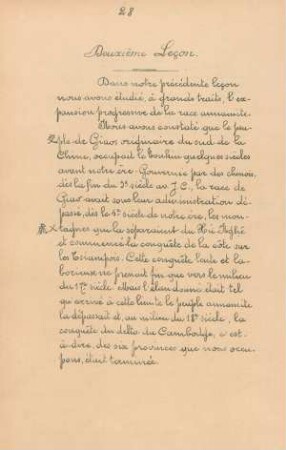 28
Deuxième Leçon.
Dans notre précédente leçon
nous avons étudié, à grands traits, l'ex-
pansion progressive de la race annamite.
Nous avons constaté que le peu-
ple de Giao, originaire du sud de la
Chine, occupait le Tonkin quelques siècles
avant notre ère. Gouverné par des chinois,
dès la fin du 3e siècle av. J.C., la race de
Giao avait sous leur administration dé-
passé, dès le 4e siècle de notre ère, les mon-
tagnes qui la séparaient du
et commencé la conquête de la côte sur
les Tsiampois. Cette conquête lente et la-
borieuse ne prenait fin que vers le milieu
du 17e siècle. Mais l'élan donné était tel
qu'arrivé à cette limite le peuple annamite
la dépassait et, au milieu du 18e siècle, la
conquête du delta du Cambodge, c'est-
à-dire, des six provinces que nous occu-
pons, était terminée.